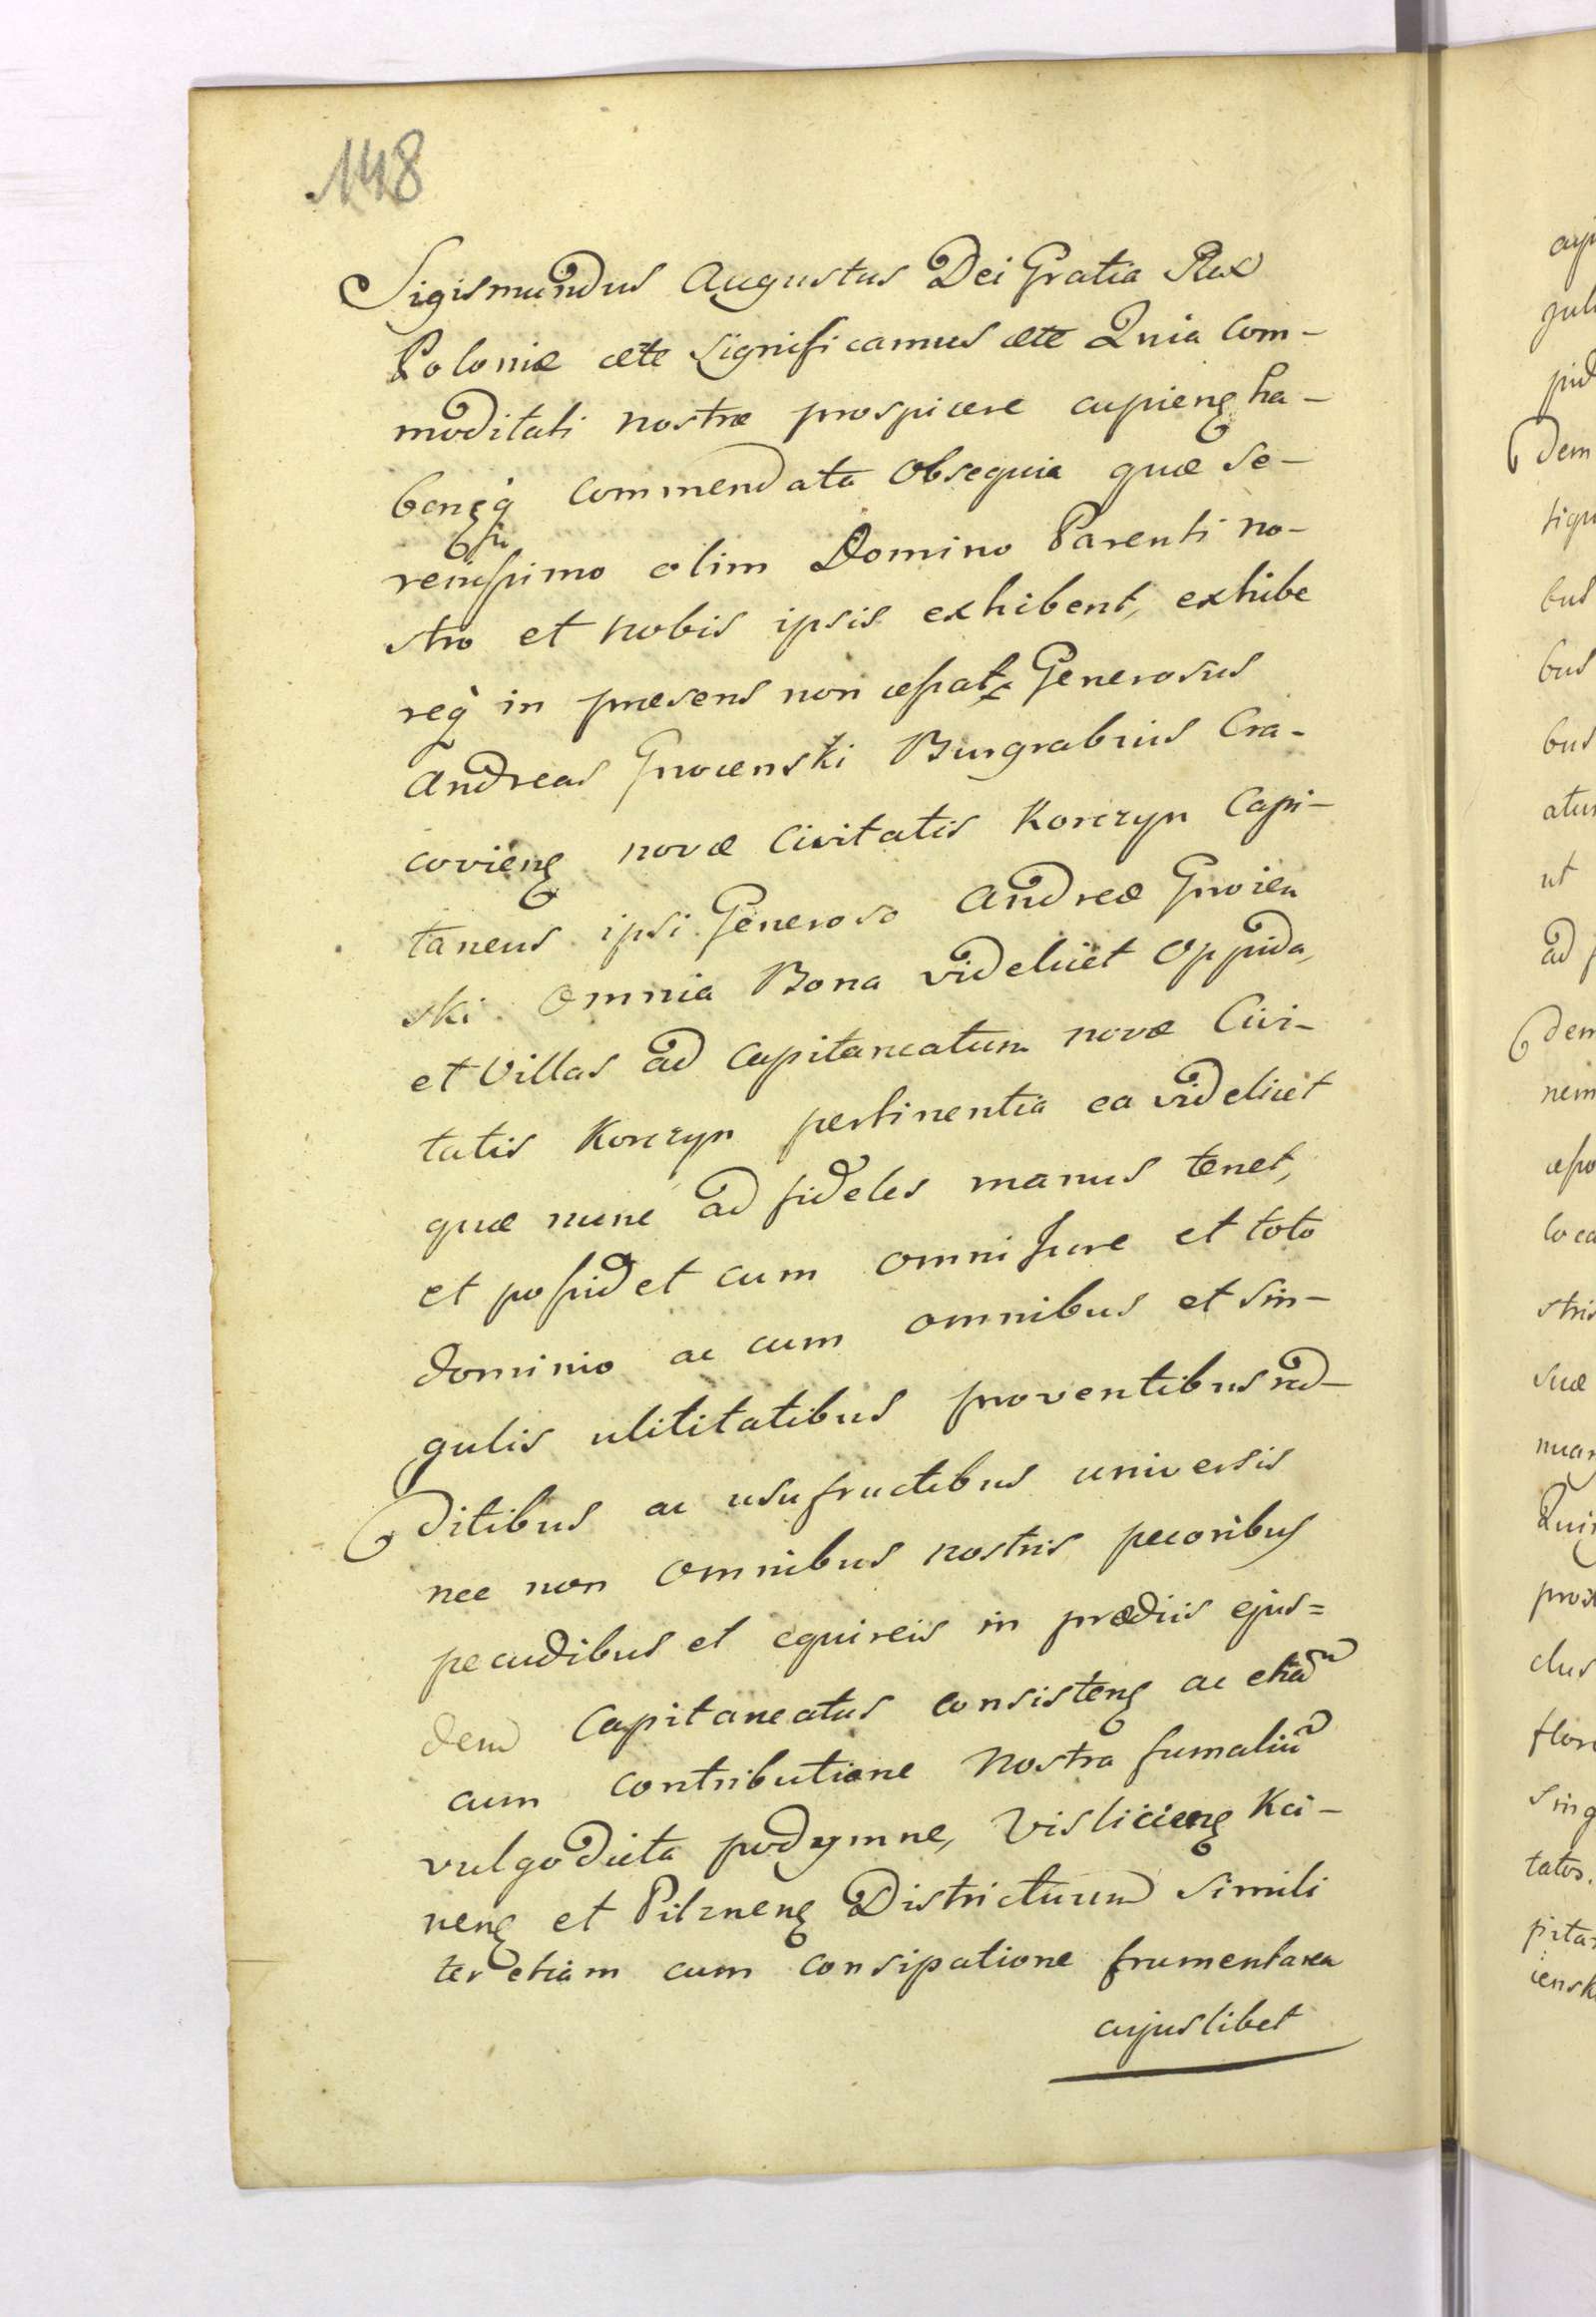 148
Sigismundus Augustus Dei Gratia Rex
Poloniæ ætc significamus ætc Quia Com-
moditati nostræ prospicere cupieng ha-
bengq̀ commendata obsequia quæ Se-
renissimo olim Domino Parenti no-
stro et nobis ipsis exhibent, exhibe
req̀ in præsens non cessat, Generosus
Andreas Gnoienski Burgrabius Cra-
covieng novæ Civitatis Korczyn Capi-
taneus ipsi Generoso Andreæ Gnoien
ski omnia Bona videlicet Oppida,
et Villas ad Capitaneatum novæ Civi-
tatis Korczyn pertinentia ea videlicet
quæ nunc ad fideles manus tenet,
et possidet cum omni Jure et toto
dominio ac cum omnibus et sin-
gulis utilitatibus proventibus red-
ditibus ac usufructibus universis
nec non omnibus nostris pecoribus
pecudibus et equireis in prædiis ejus=
dem Capitaneatus consisteng ac etiam
cum contributione nostra fumalium
vulgo dicta podymne, Vislicieng Xci-
neng et Pilzneng Districtuum simili
ter etiam cum consipatione frumentarea
cujuslibet